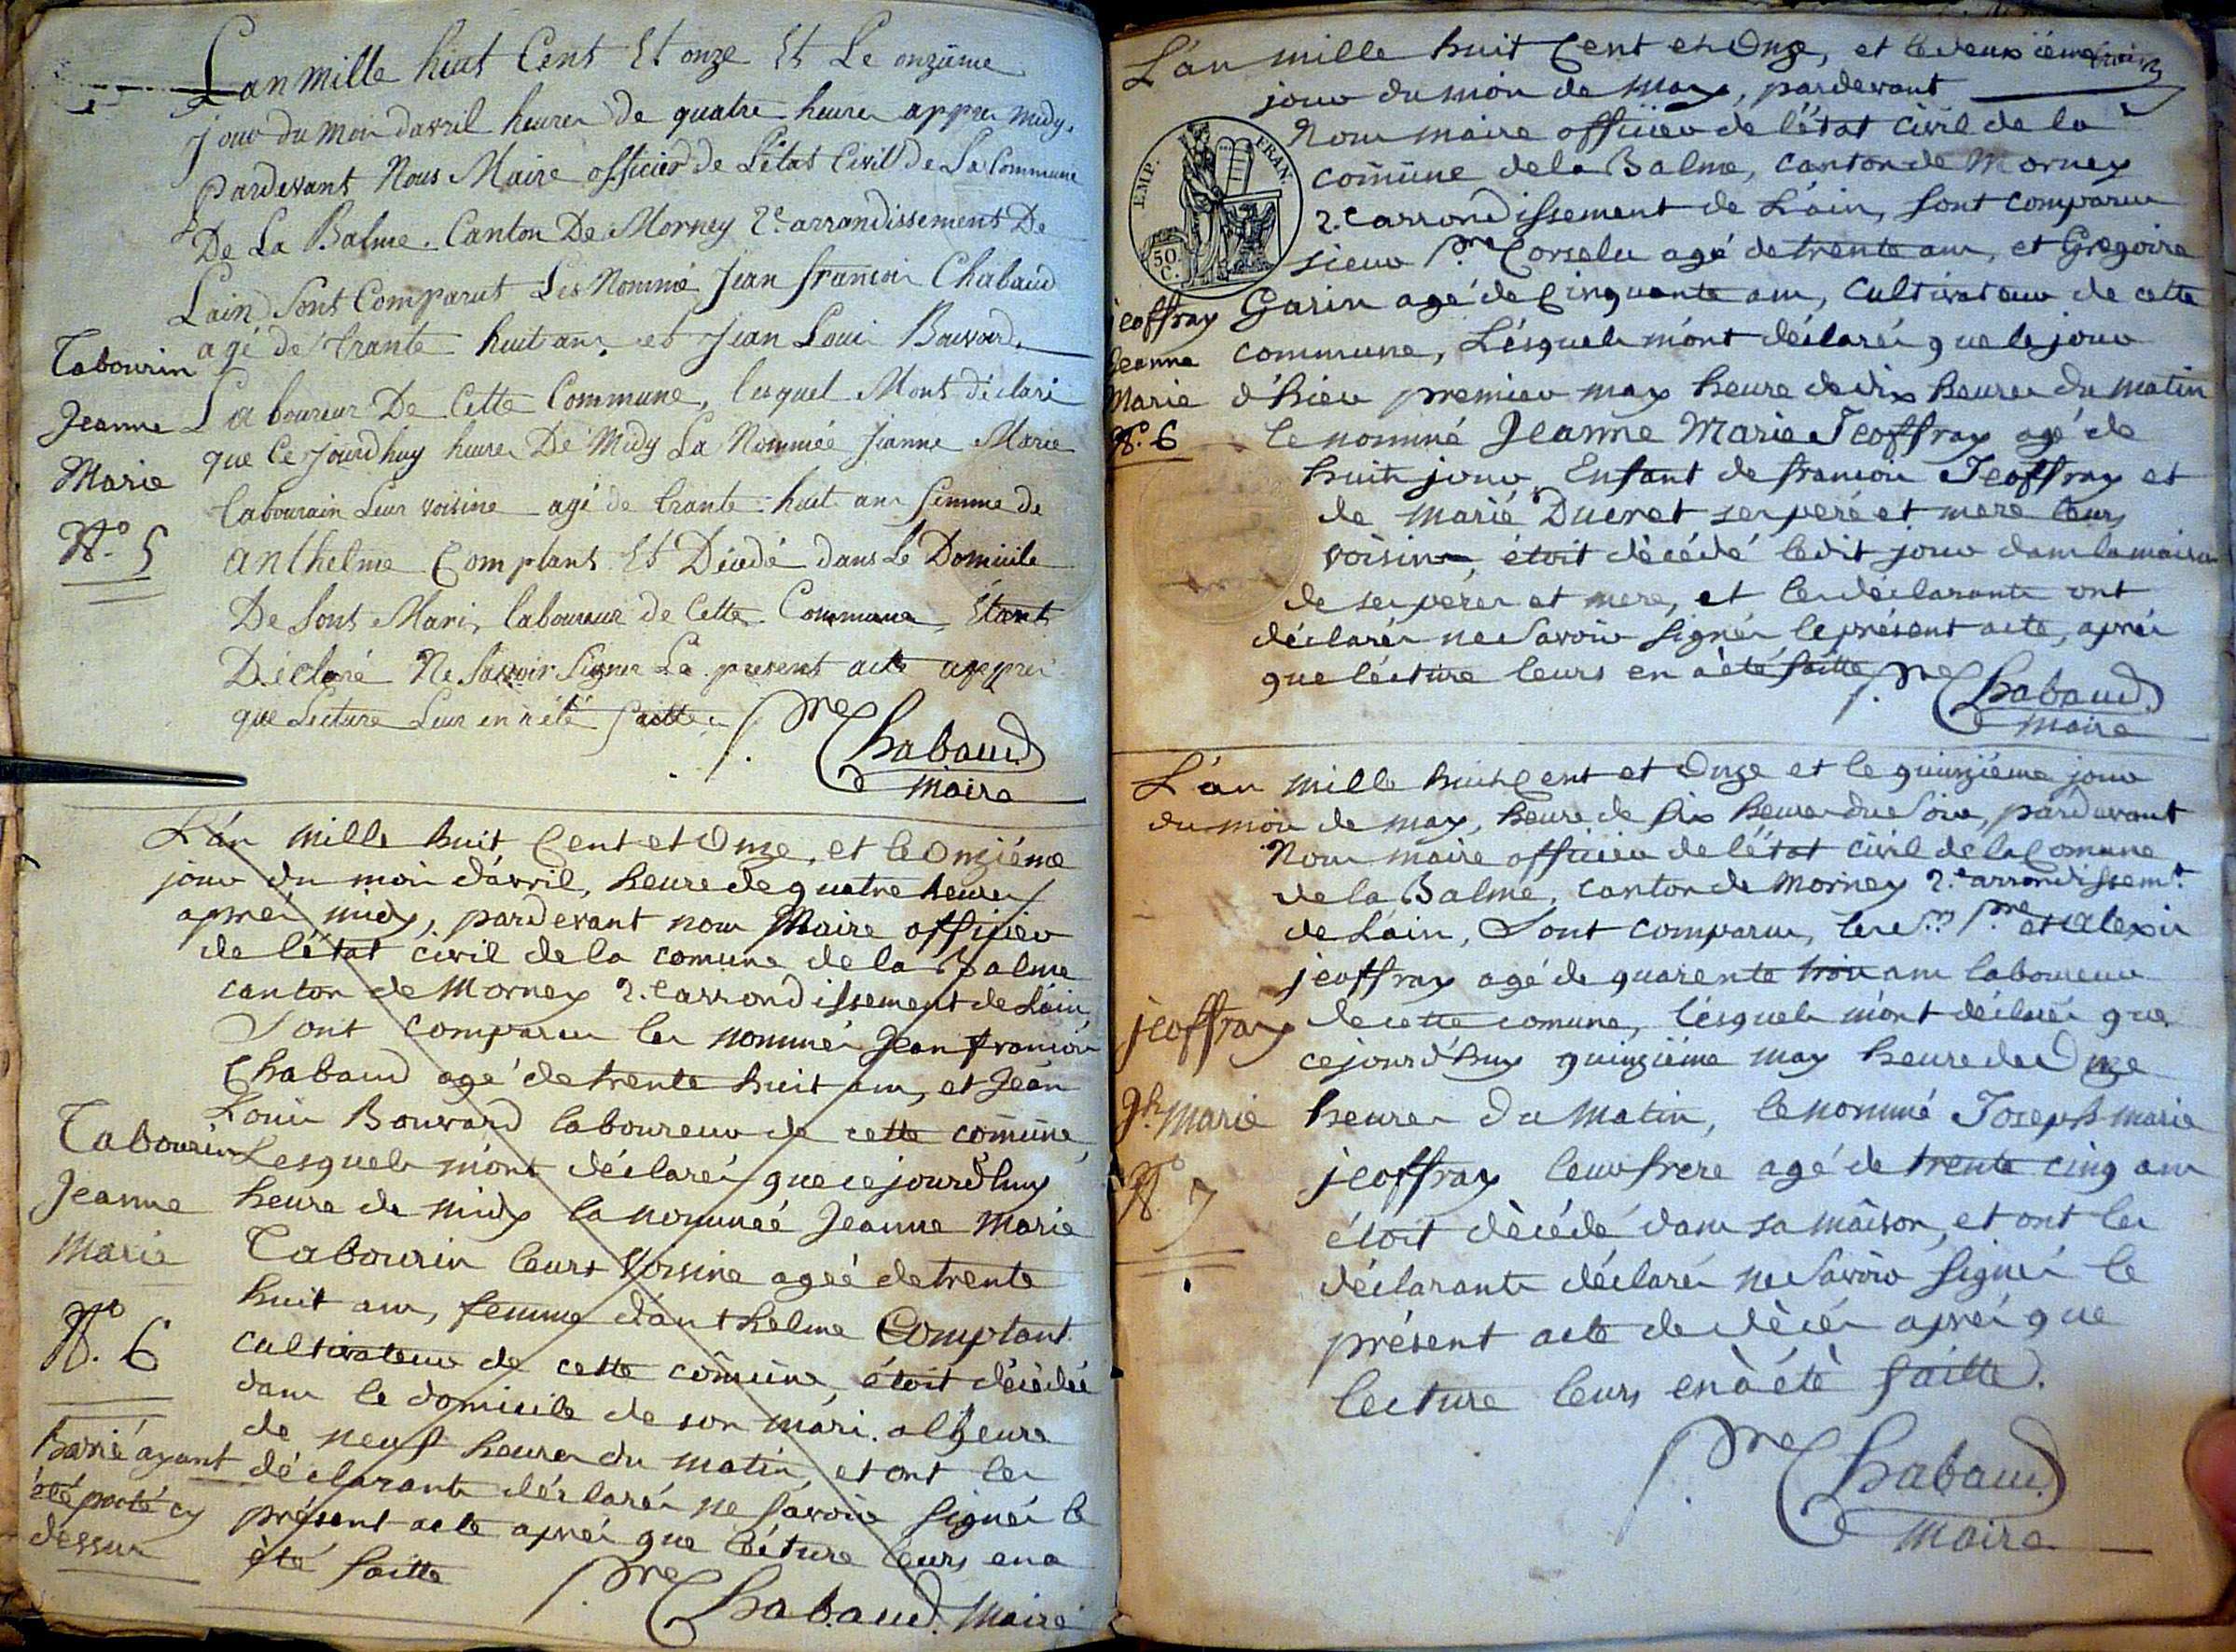 Lan mille huit Cent Et onze Et Le onziéme
jour du moi davril heures de quatre heures appres midy.
Pardevant Nous Maire officier de L'état Civil de La Commune
De La Balme. Canton De Morney 2e. arrandissement De
Lain Sont Comparut Les Nommé Jean françoi Chabaud
agé de trante huit ans et Jean Loui Bouvard
Tabourin
Laboureur De Cette Commune, lesquel Mont déclaré
Jeanne
que Ce jourdhuy heures De Midy La Nommée Jeanne Marie
Marie
tabourain Leur voisine agé de trante huit ans femme de
N.o 5
anthelme Complant Et Décédé dans Le Domicile
De Sont Mari, laboureur de Cette Commune, Etant
Déclaré Ne Savoir Signer Le present acte appres
que Lecture Leur en n été faitte
P.re Chabaud
maire
L'án mille huit Cent et Onze, et le Onziéme
jour du moi d'avril, heure de quatre heures
aprés midy, pardevant nous Maire officier
de l'état civil de la comune de la Balme
canton de Morney 2.e arrondissement de L'ain
Sont comparus les nommés Jean françois
Chabaud agé de trente huit ans, et Jean
Louis Bouvard laboureur de cette comune,
Tabourin
Lesquels m'ont déclarés que ce jourd'huy
Jeanne
heure de midy la nommée Jeanne Marie
Marie
Tabourin leurs Voisine agée de trente
huit ans, femme d'anthelme Complant
N.o 6
cultivateur de cette comune, étoit décédée
dans le domicile de son mari. a l'heure
de neuf heures du matin, et ont les
Barré ayant
déclarants déclarés ne savoir signer le
été porté cy
présent acte aprés que lécture leurs en a
dessus
été faitte
P.re Chabaud. Maire
L'án mille huit Cent et Onze, et le deuxiéme
jour du mois de may, pardevant
Nous maire officier de l'état civil de la
EMP. FRAN.
50. C.
comune de la Balme, canton de Morney
2.e arrondissement de L'ain, sont comparus
sieur P.re Corselu agé de trente ans, et Gregoire
jeoffray
Garin agé de Cinquante ans, Cultivateur de cette
Jeanne
commune, Lésquels m'ont déclarés que le jour
Marie
d'hier premier may heure de dix heures du matin
N.o 6
le nommé Jeanne Marie Jeoffray agé de
huit jour, Enfant de françois Jeoffray et
de Marie Ducret ses peré et mere leurs
voisins, étoit décédé ledit jour dans la maison
de ses peres et mere, et les déclarants ont
déclarés ne Savoir signér le présent acte, aprés
que lécture leurs en a été faitte
P.re Chabaud
maire
L'án mille huit Cent et Onze et le quinziéme jour
du moi de may, heure de six heures du Soir, pardevant
Nous maire officier de l'état civil de la Comune
de la Balme, canton de Morney 2.e arrondissem.t
de L'ain, Sont comparus, les S.rs P.re et alexis
jeoffray agé de quarente trois ans laboureur
jeoffray
de cette comune, lésquels m'ont déclarés que
ce jourd'huy quinziéme may heure de Onze
Jh. Marie
heures du Matin, le nommé Joseph marie
N.o 7
jeoffray leur frere agé de trente cinq ans
étoit décédé dans sa maison, et ont les
déclarants déclarés ne Savoir signér le
présent acte de décés aprés que
lecture leurs en à été faitte.
P.re Chabaud
maire